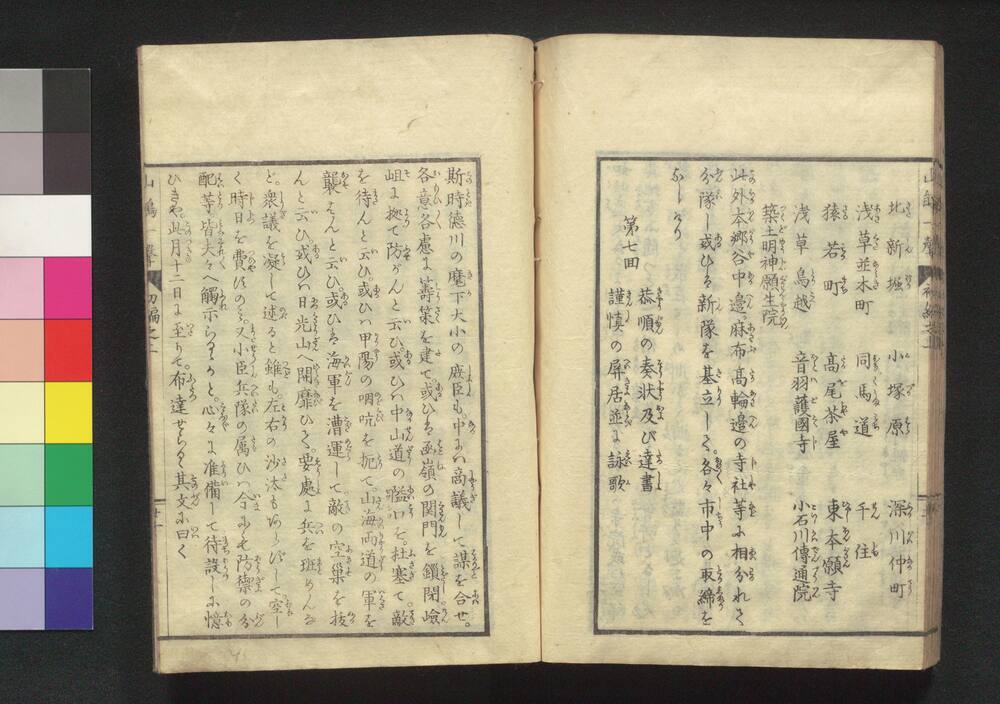 北新堀　小塚原　深川仲町
浅草並木町　同馬道　千住
猿若町　高尾茶屋　東本願寺
浅草鳥越　音羽護國寺　小石川傳通院
築土明神願生院
此外本郷谷中邉麻布高輪邉の寺社等に相分れて
分隊し或ひは新隊を基立して各々市中の取締を
なしけり
第七回
恭順の奏状及び達書
謹慎の屏居並に詠歌
斯時徳川の麾下大小の臣も。中には商議して謀を合せ。
各意各慮に籌策を建て或ひは函嶺の関門を鎖閉嶮
岨に拠て防がんと云ひ或ひは中山道の隘口を。杜塞て。敵
を待んと云ひ。或ひは甲陽の咽吭を扼て山海両道の軍を
襲はんと云ひ。或ひは海軍を漕運して。敵の空巣を抜
んと云ひ或ひは日光山へ開靡ひて。要處に兵を班めんな
ど。衆議を凝して述ると雖も。左右の沙汰もあらずして。空し
く時日を費すのみ又小臣兵隊の属ひは今にも防禦の分
配等皆夫々へ觸示らるゝかと。心々に准備して待設しに憶
ひきや。此月十二日に至りて。布達せらる其文に曰く
山鵑一聲　初編之上